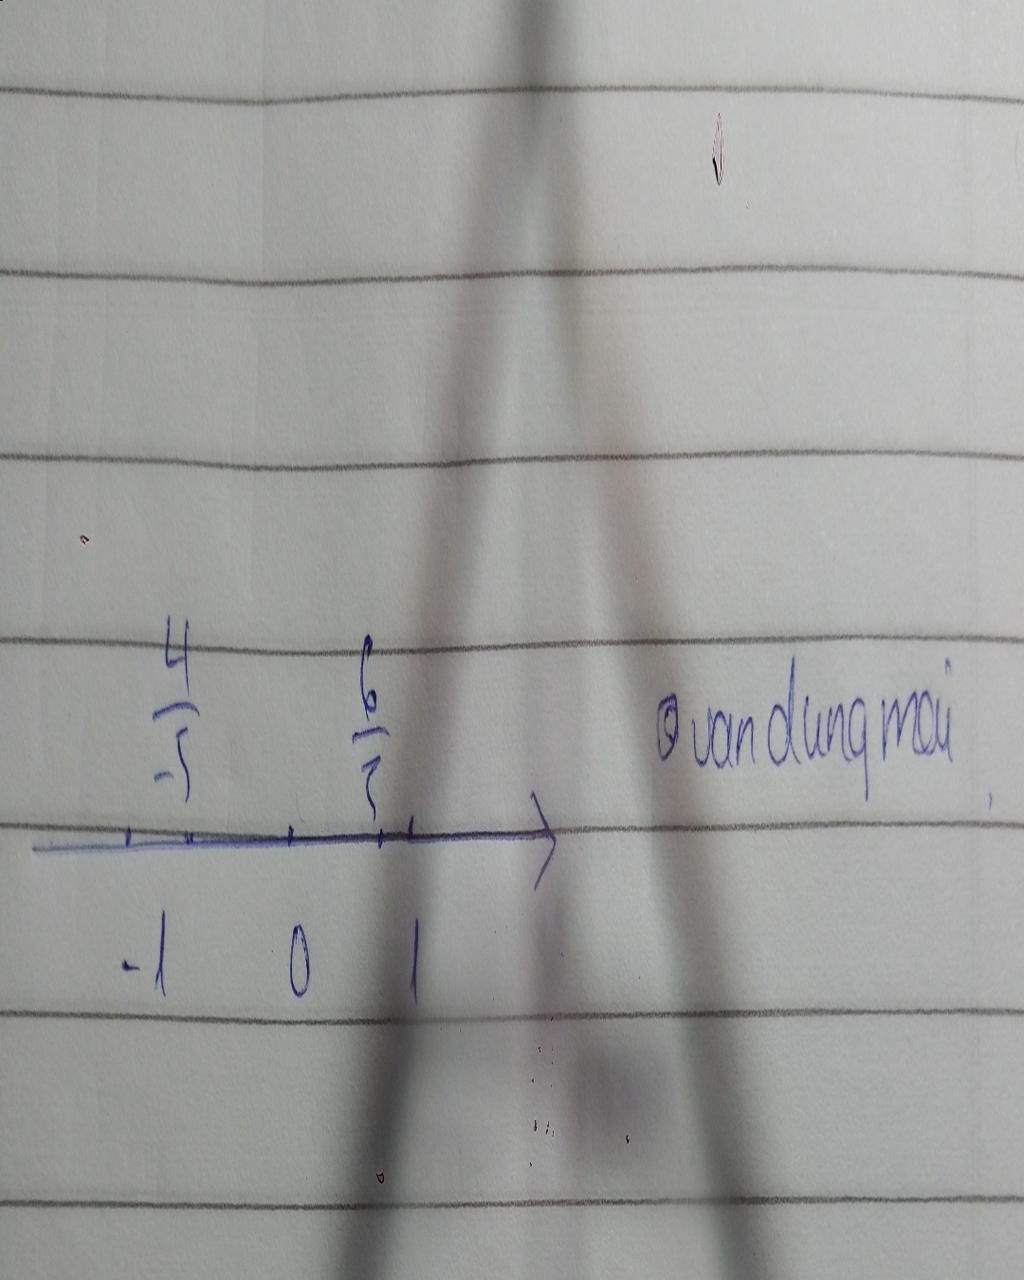 4 6
-5 7
@vandungmai
-1 0 1